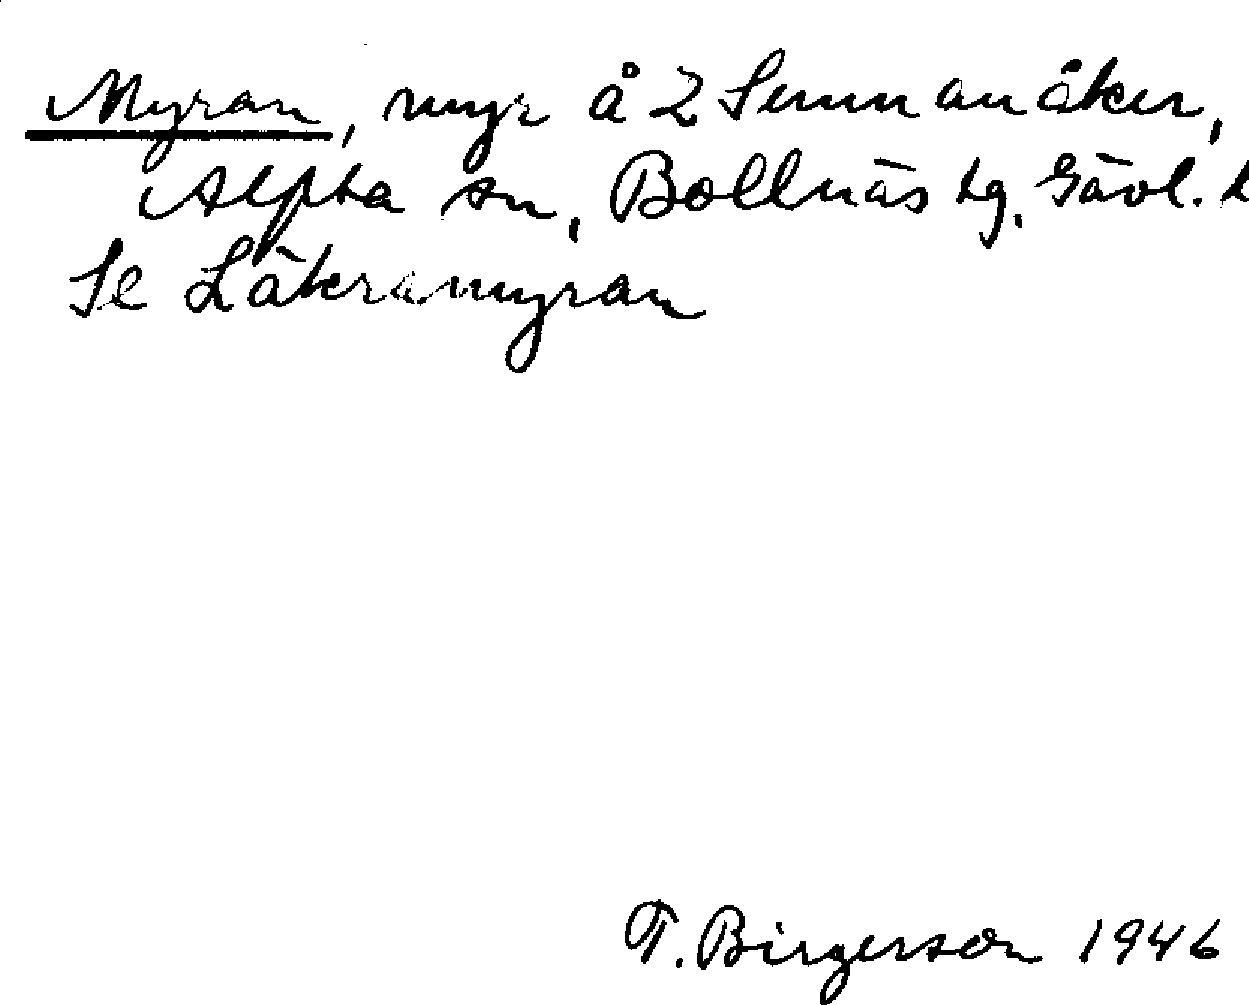 Myran, myr å 2 Sunnanåker,
Alfta sn, Bollnäs tg, Gävl. l
Se Låkramyran
T. Birgerson 1946